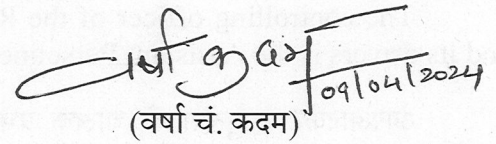 वर्षा कदम
09/04/2024
(वर्षा चं. कदम)